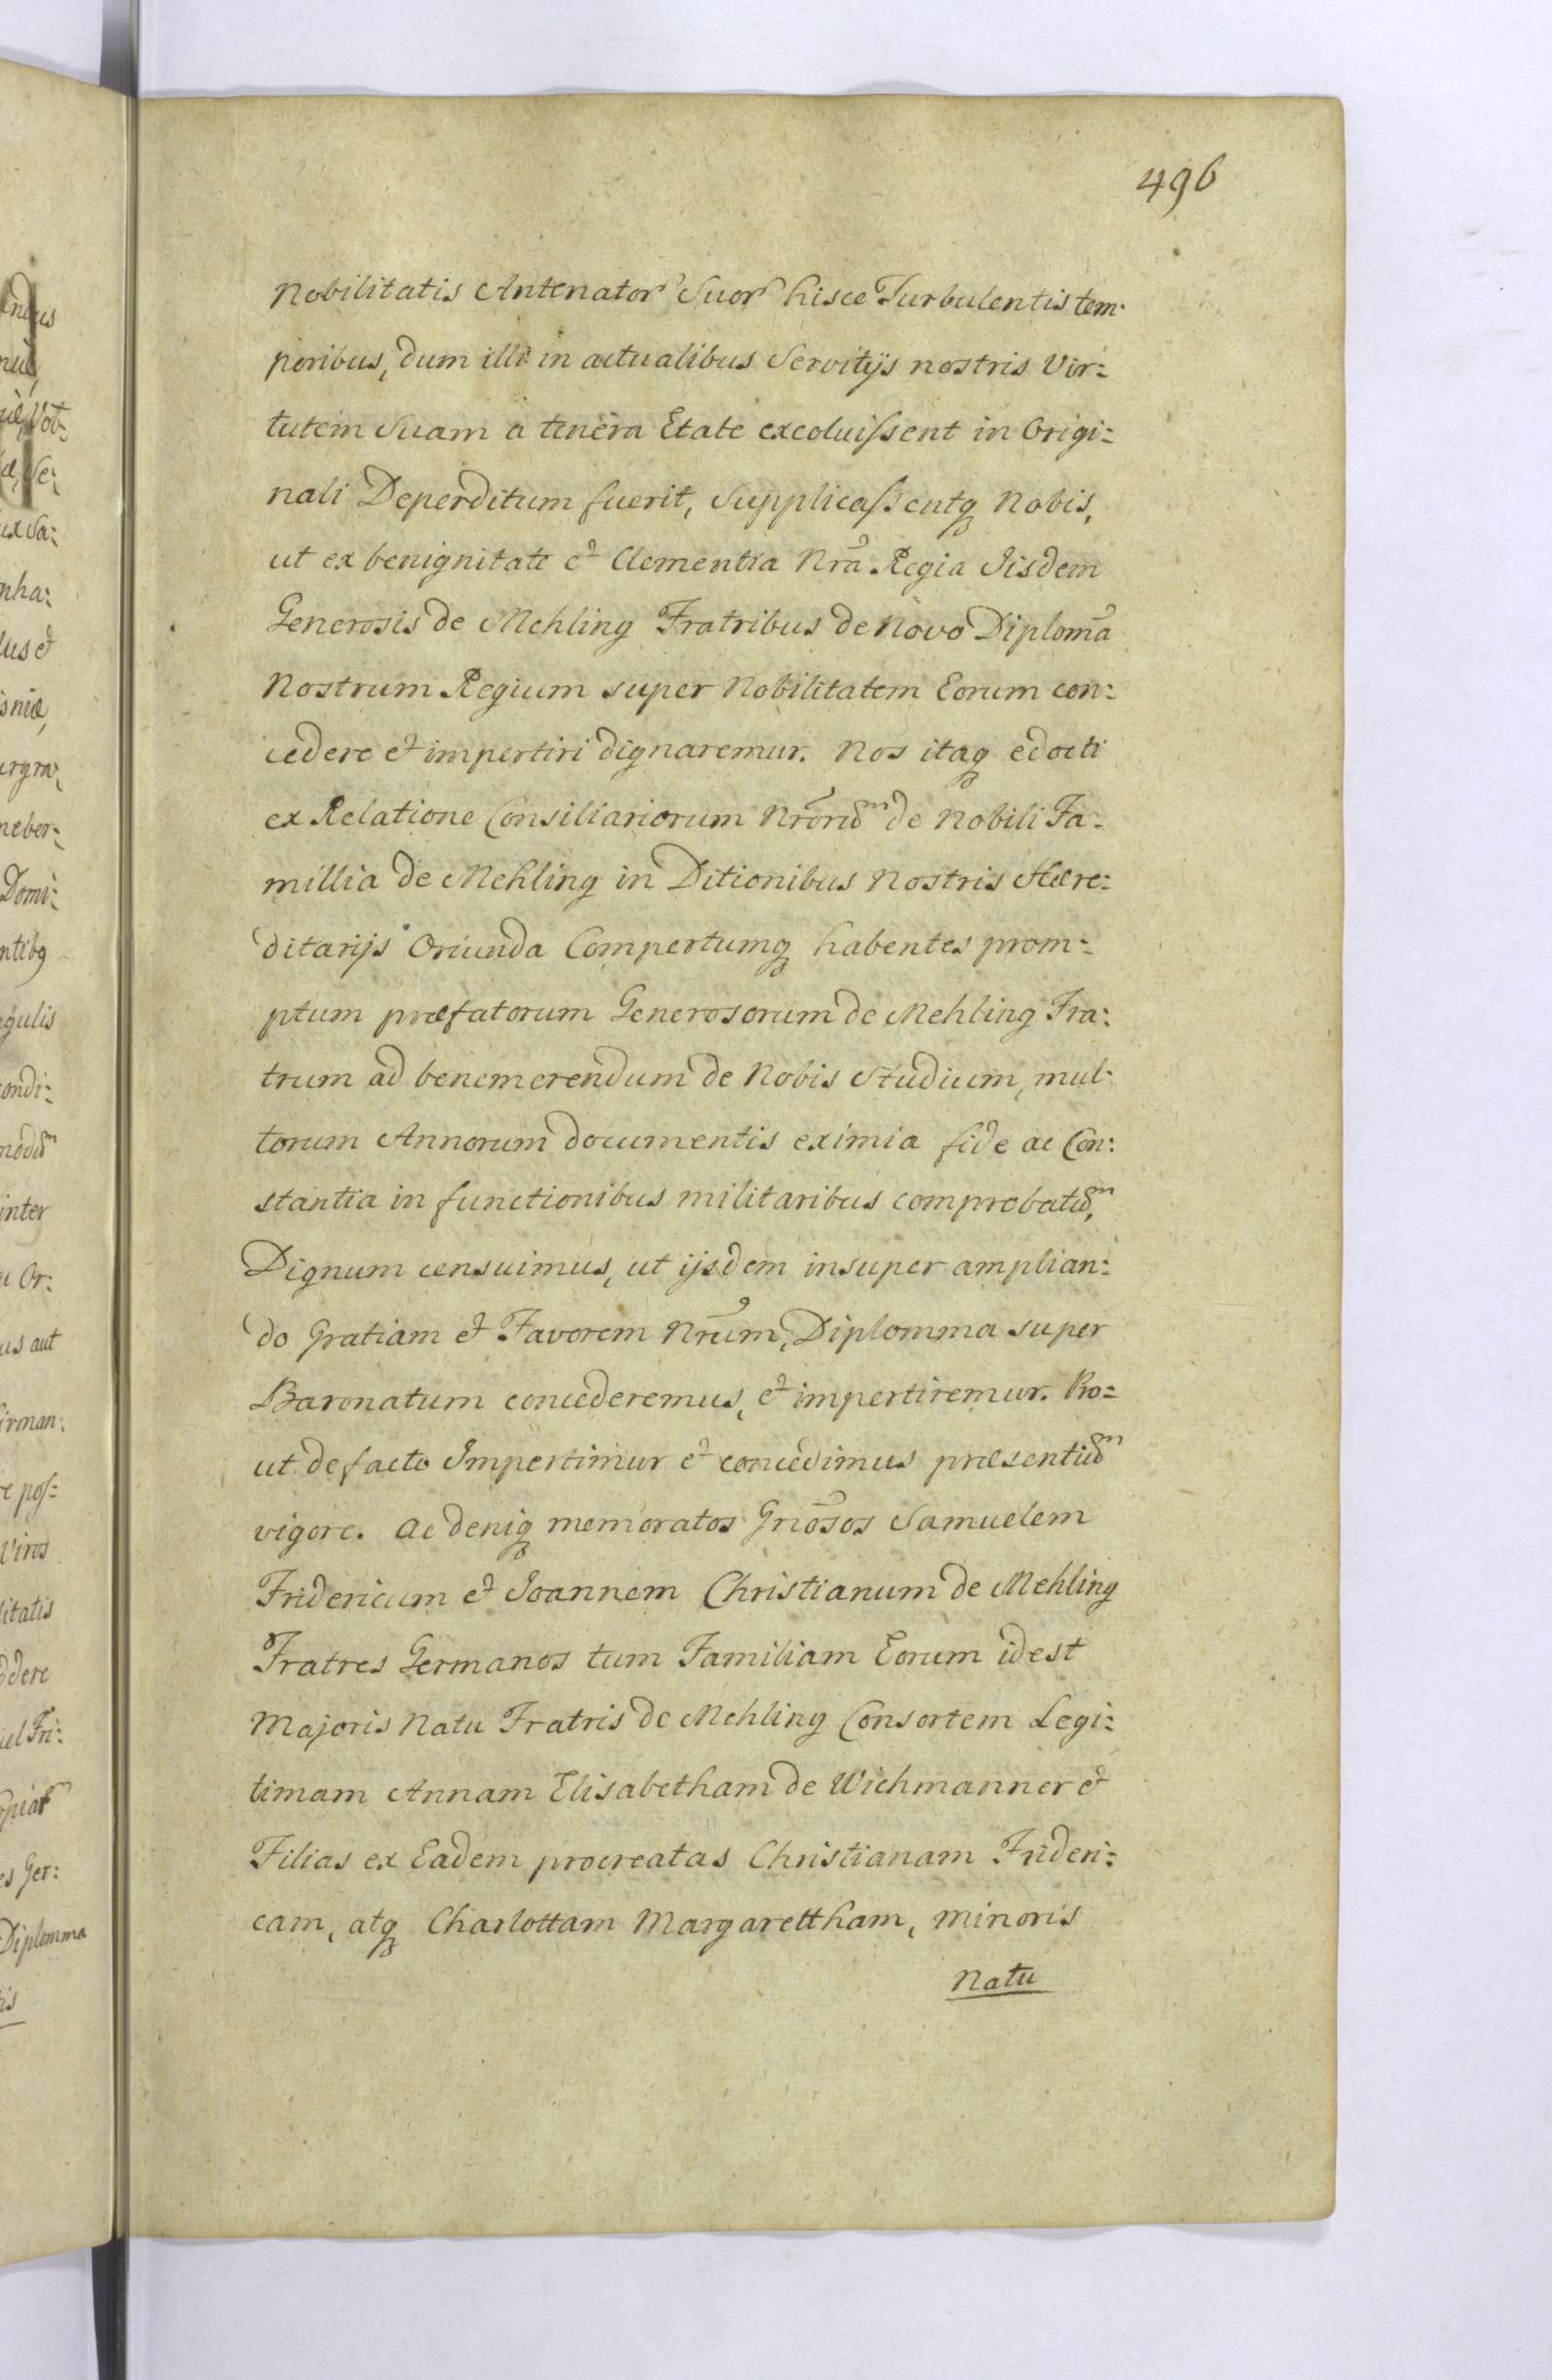 496
Nobilitatis Antenator Suor hisce Turbulentis tem:
poribus, dum illi in actualibus Servitijs nostris Vir:
tutem Suam a tenera Etate excoluissent in Origi:
nali Deperditum fuerit, Supplicassentq Nobis,
ut ex benignitate et Clementia Nrã Regia Iisdem
Generosis de Mehling Fratribus de Novo Diploma
Nostrum Regium super Nobilitatem Eorum con:
cedere et impertiri dignaremur. Nos itaq edocti
ex Relatione Consiliariorum Nrõrum de Nobili Fa:
millia de Mehling in Ditionibus Nostris Hære:
ditarijs Oriunda Compertumq habentes prom:
ptum præfatorum Generosorum de Mehling Fra:
trum ad benemerendum de Nobis Studium, mul:
torum Annorum documentis eximia fide ac Con:
stantia in functionibus militaribus comprobatum,
Dignum censuimus, ut ijsdem insuper amplian:
do Gratiam et Favorem Nrũm, Diplomma super
Baronatum concederemus, et impertiremur. Pro:
ut de facto Impertimur et concedimus præsentium
vigore. Ac deniq memoratos Gnõsos Samuelem
Fridericum et Joannem Christianum de Mehling
Fratres Germanos tum Familiam Eorum id est
Majoris Natu Fratris de Mehling Consortem Legi:
timam Annam Elisabetham de Wichmanner et
Filias ex Eadem procreatas Christianam Frideri:
cam, atq Charlottam Margarettham, minoris
Natu